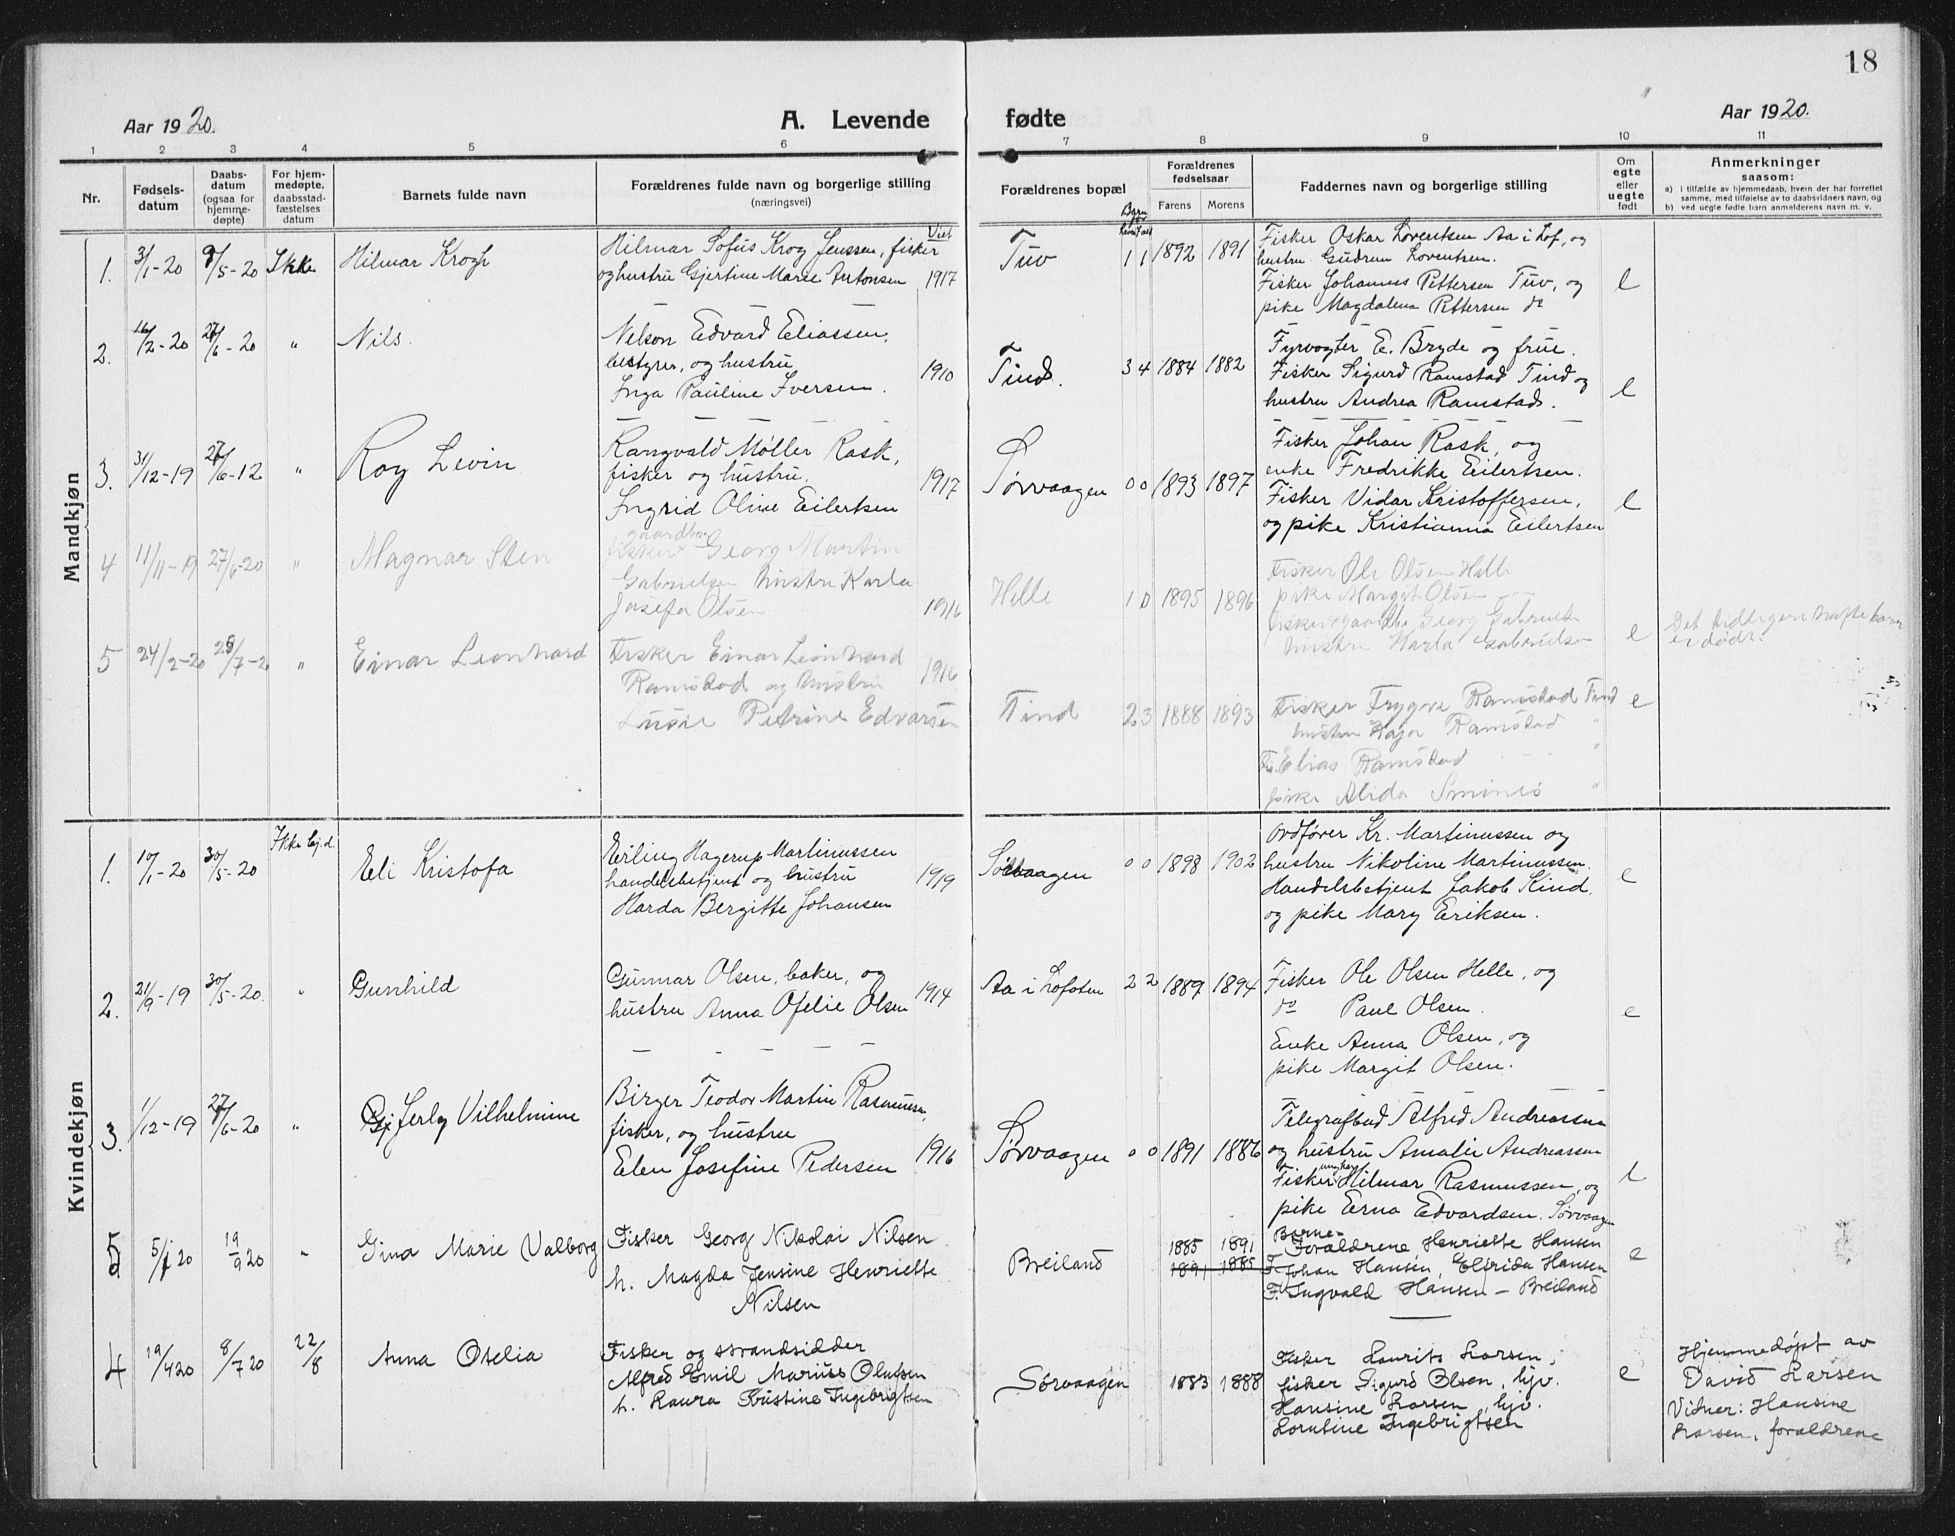 18
Aar 1920.
A. Levende fødte
Aar 1920.
1 2 3 4 5 6 7 8 9 10 11
Nr.
Fødsels-
datum
Daabs-
datum
(ogsaa for
hjemme-
døpte)
For hjem-
medøpte,
daabsstad-
fæstelses
datum
Barnets fulde navn
Forældrenes fulde navn og borgerlige stilling
(næringsvei)
Forældrenes bopæl
Forældrenes
fødselsaar
Farens Morens
Faddernes navn og borgerlige stilling
Om
egte
eller
uegte
født
Anmerkninger
saasom:
a) i tilfælde av hjemmedaab, hvem der har forrettet
samme, med tilføielse av to daabsvidners navn, og
b) ved uegte fødte barn anmelderens navn m. v.
Mandkjøn
1. 3/1-20 9/5-20 Ikke Hilmar Krogh
Hilmar Sofus Krog Jenssen, fisker
og hustru Gjertine Marie Antonsen 1917
Tuv 1 1 1892 1891
Fisker Oskar Loventsen Aa i Lof, og
hustru Gudrun Loventsen.
Fisker Johannes Pettersen Tuv, og
pike Magdalena Pettersen do
e
2. 16/2-20 27/6-20 " Nils.
Nelson Edvard Eliassen,
bestyrer, og hustru
Inga Pauline Iversen. 1910
Tind. 3 4 1884 1882
Fyrvogter E. Bryde og frue.
Fisker Sigurd Ramstad Tind og
hustru Andrea Ramstad.
e
3. 31/12-19 27/6-12 " Roy Levin
Rangvald Møller Rask,
fisker og hustru.
Ingrid Oline Eilertsen 1917
Sørvaagen 0 0 1893 1897
Fisker Johan Rask, og
enke Fredrikke Eilertsen.
Fisker Vidar Kristoffersen,
og pike Kristianna Eilertsen
e
4 11/11-19 27/6-20 " Magnar Sten
fisker Georg Martin
Gabrielsen hustru Karla
Josefa Olsen 1916
Helle 1 0 1895 1896
Fisker Ole Olsen Helle
pike Margit Olsen
Georg Gabrielsen
hustru Karla Gabrielsen
e
Det tidligere
er dødt.
5 24/2-20 25/7-20 " Einar Leonhard
Fisker Einar Leonhard
Ramstad og hustru 1916
Lusie Petrine Edvarsen
Tind 2 3 1888 1893
Fisker Trygve Ramstad Tind
hustru Kaja Ramstad "
Fis. Elias Ramstad "
pike Alida "
e
Kvindekjøn
1. 10/1-20 30/5-20 Ikke hj.d. Eli Kristofa
Erling Hagerup Martinussen
handelsbetjent og hustru 1919
Harda Bergitte Johansen
Sørvaagen 0 0 1898 1902
Ordfører Kr. Martinussen og
hustru Nikoline Martinussen.
Handelsbetjent Jakob Kind,
og pike Mary Eriksen.
e
2. 21/9-19 30/5-20. " Gunhild
Gunnar Olsen, baker, og
hustru Anna Ofelie Olsen 1914
Aa i Lofoten 2 2 1889 1894
Fisker Ole Olsen Helle, og
do Paul Olsen.
Enke Anna Olsen, og
pike Margit Olsen.
e
3. 1/12-19 27/6-20 " Gj Jerly Vilhelmine
Birger Teodor Martin Rasmussen,
fisker, og hustru
Elen Josefine Pedersen 1916
Sørvaagen 0 0 1891 1886
Telegrafbud Alfred Andreassen
og hustru Amalie Andreassen
Fisker ungkar Hilmar Rasmussen, og
pike Erna Edvardsen. Sørvaagen
e
5 5/1 20 19/9 20 " Gina Marie Valborg
Fisker Georg Nikolai Nilsen
h. Magda Jensine Henriette
Nilsen
Breiland 1885 1891
1891 1885
Barne-
Forældrene, Henriette Hansen
F. Johan Hansen, Elfrida Hansen
F. Ingvald Hansen – Breiland
e
4 19/4 20 8/7 20 22/8 Anna Otelia
Fisker og strandsidder
Alfred Emil Marius Olufsen
h. Laura Kristine Ingebrigtsen
Sørvaagen 1883 1888
Fisker Laurits Larsen,
fisker Sigurd Olsen, hjv.
Hansine Larsen, hjv.
Lorntine Ingebrigtsen
e
Hjemmedøpt av
David Larsen
Vidner: Hansine
Larsen, forældrene